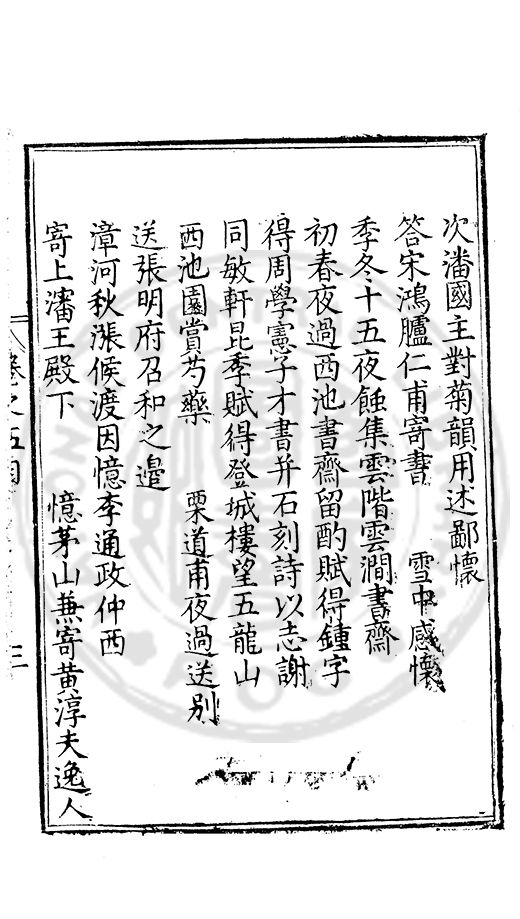 次潘國主對菊韻用述鄙懷
答宋鴻臚仁甫寄書　雪中感懷
季冬十五夜餘集雲階雲澗書齋
初春夜過西池書齋留酌賦得鍾字
得周學憲子才書并石刻詩以志謝
同敏軒昆季賦得登城樓望五龍山
西池園賞芍藥　栗道甫夜過送別
送張明府召和之邉
漳河秋漲候渡因憶李通政仲西
寄上瀋王殿下　憶茅山兼寄黄淳夫逸人
卷之五目
三